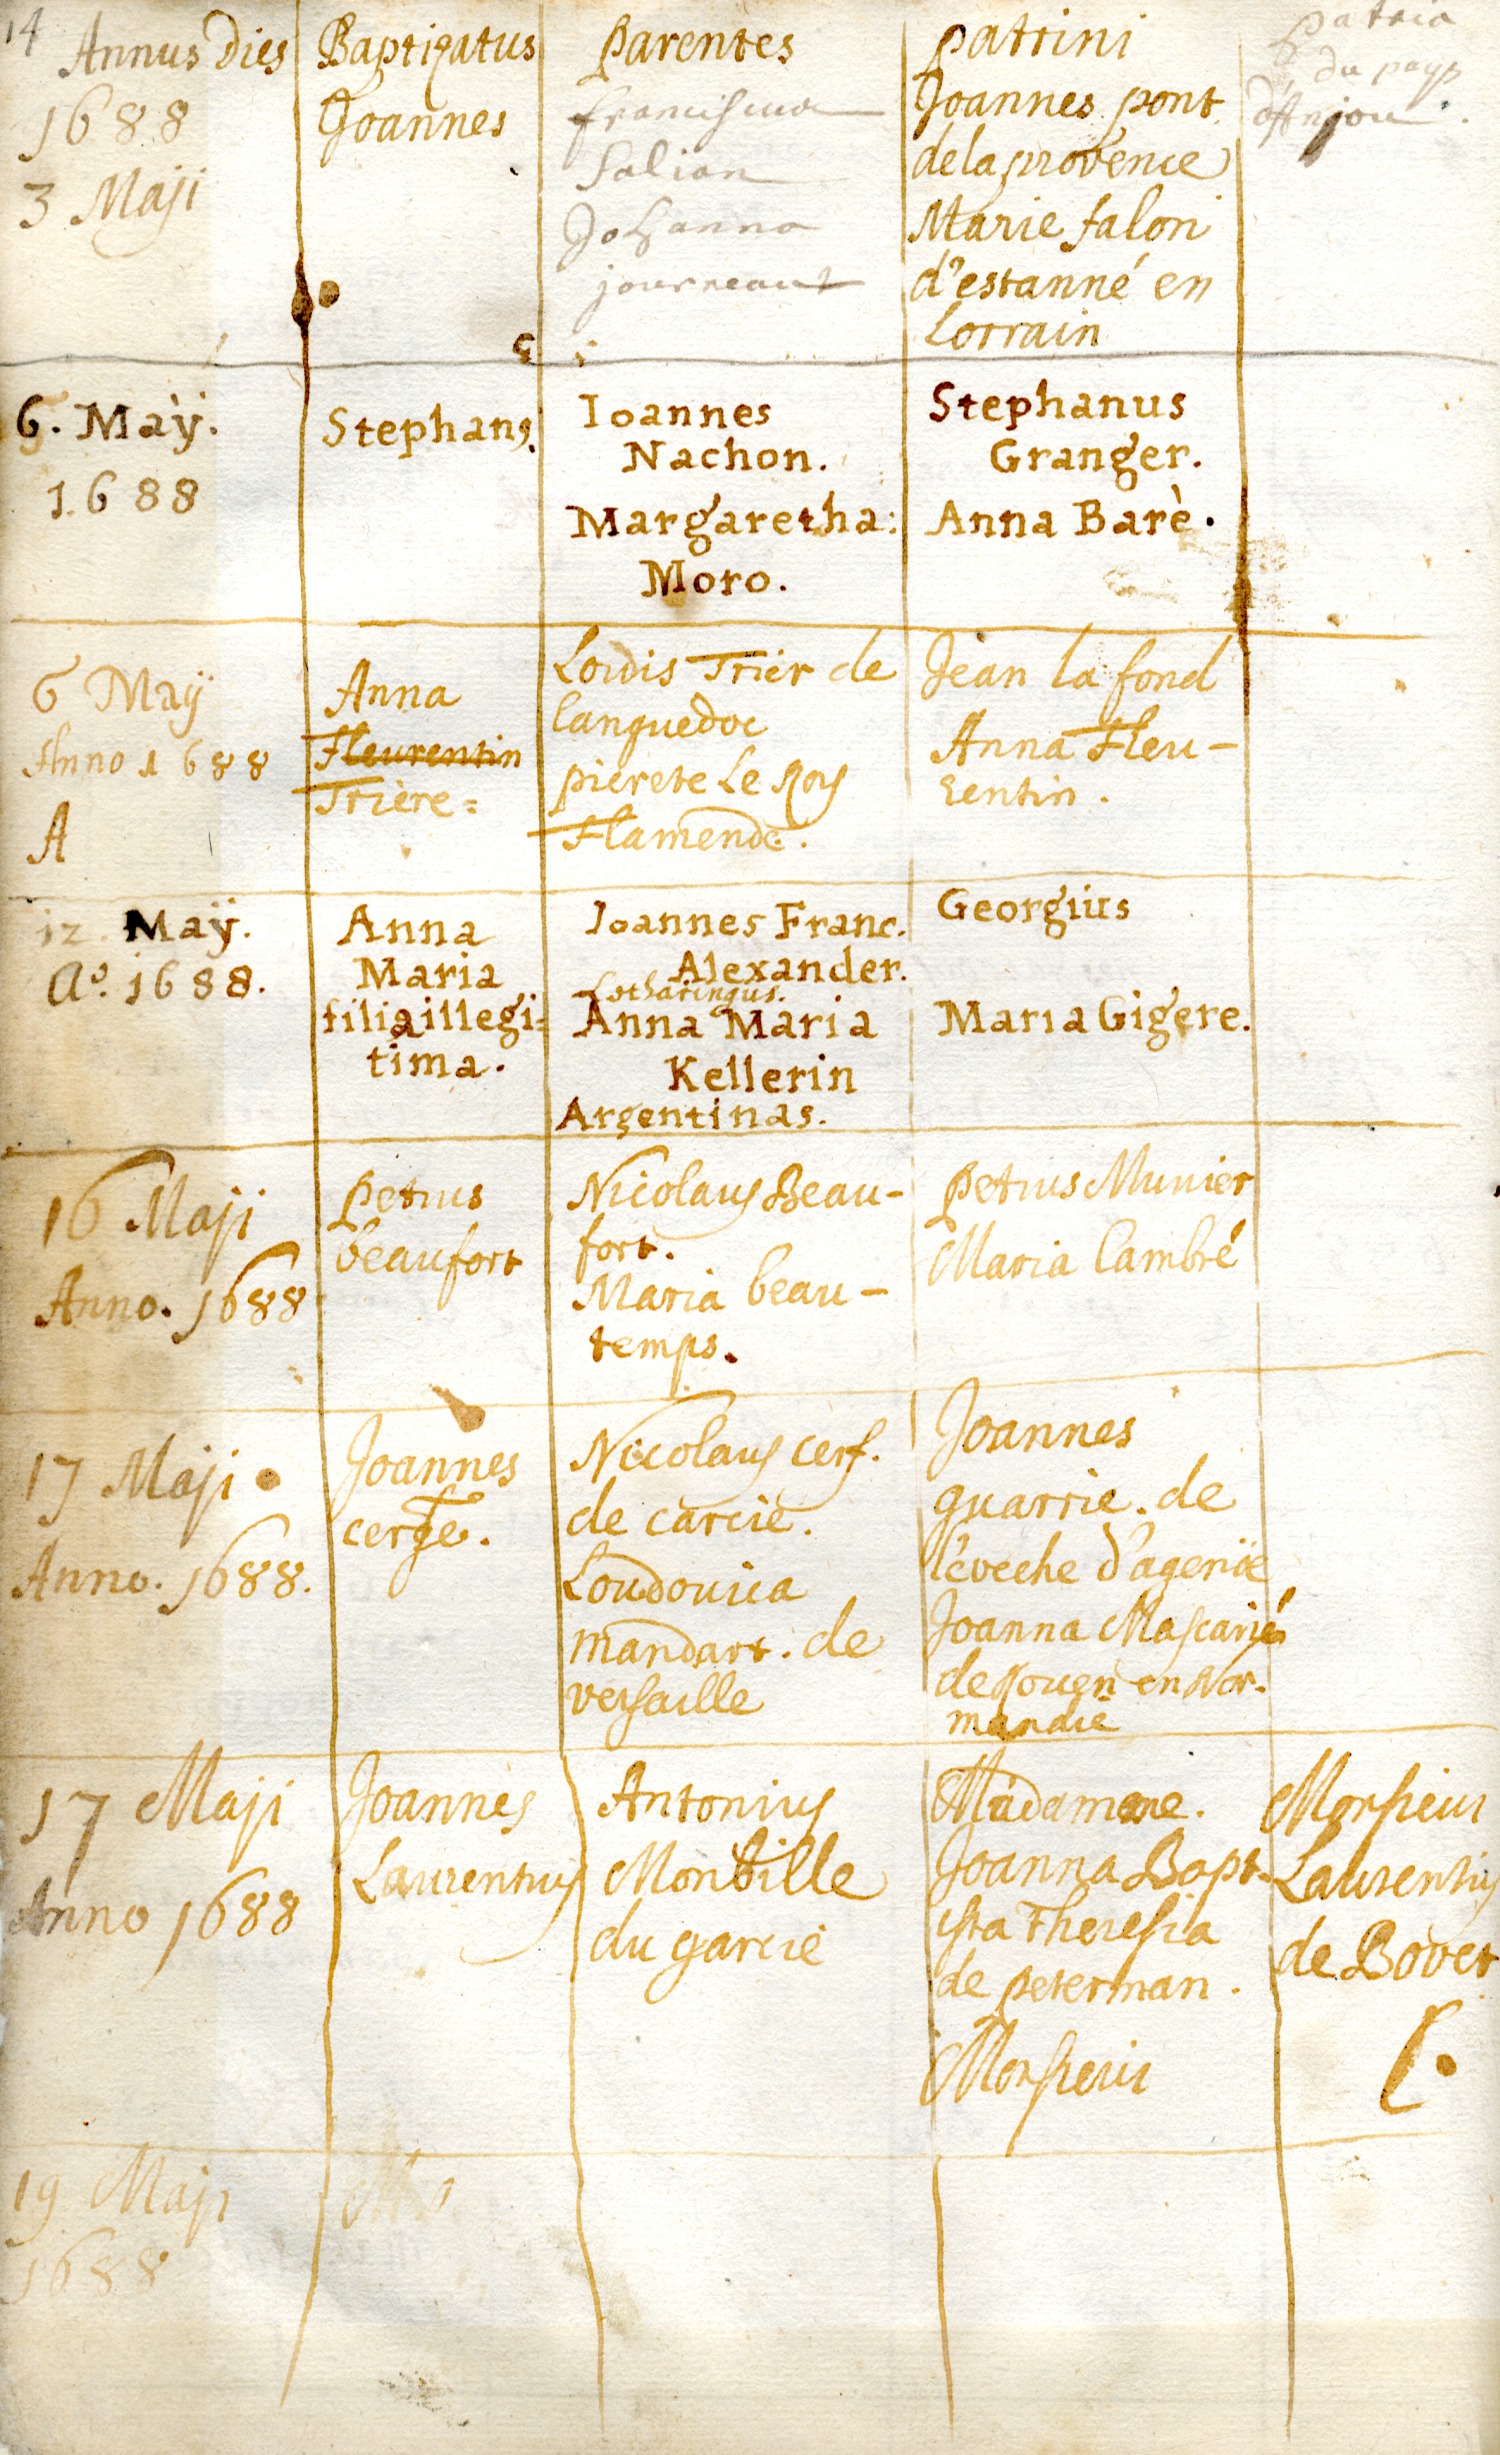 14
Annus Dies
Baptizatus
Parentes
patrini
patria
1688
3 Maji
Joannes
francisma
Salian
Johanna
journeaut
Joannes pont
de la provence
Marie falon
d'estanné en
Lorrain
du pays
d'Anjou.
6. Maÿ.
1688
Stephans.
Ioannes
Nachon.
Margaretha:
Moro.
Stephanus
Granger.
Anna Barè.
6 Maÿ
Anno 1688
A
Anna
Fleurentin
Trière=
Louis Trier de
languedoc
pierete Le Roy
Flamende.
Jean la fond
Anna Fleu-
rentin.
12. Maÿ.
Ao. 1688.
Anna
Maria
filia illegi=
tima.
Ioannes Franc.
Alexander.
Lotharingus.
Anna Maria
Kellerin
Argentinas.
Georgius
Maria Gigere.
16 Maji
Anno. 1688
petrus
beaufort
Nicolaus Beau-
fort.
Maria beau-
temps.
petrus Munier
Maria lambré
17 Maji
Anno. 1688.
Joannes
cerfe.
Nicolaus cerf.
de carcie.
Loudouica
mandart. de
versaille
Joannes
quarrie. de
l'eveche d'agenie
Joanna Mascarié
de Rouen en Nor-
mandie
17 Maji
Anno 1688
Joannes
Laurentius
Antonius
Montille
du garcie
Madame.
Joanna Bapt-
ista Theresia
de peterman.
Monsieur
Monsieur
Laurentius
de Bovet
19 Maji
1688